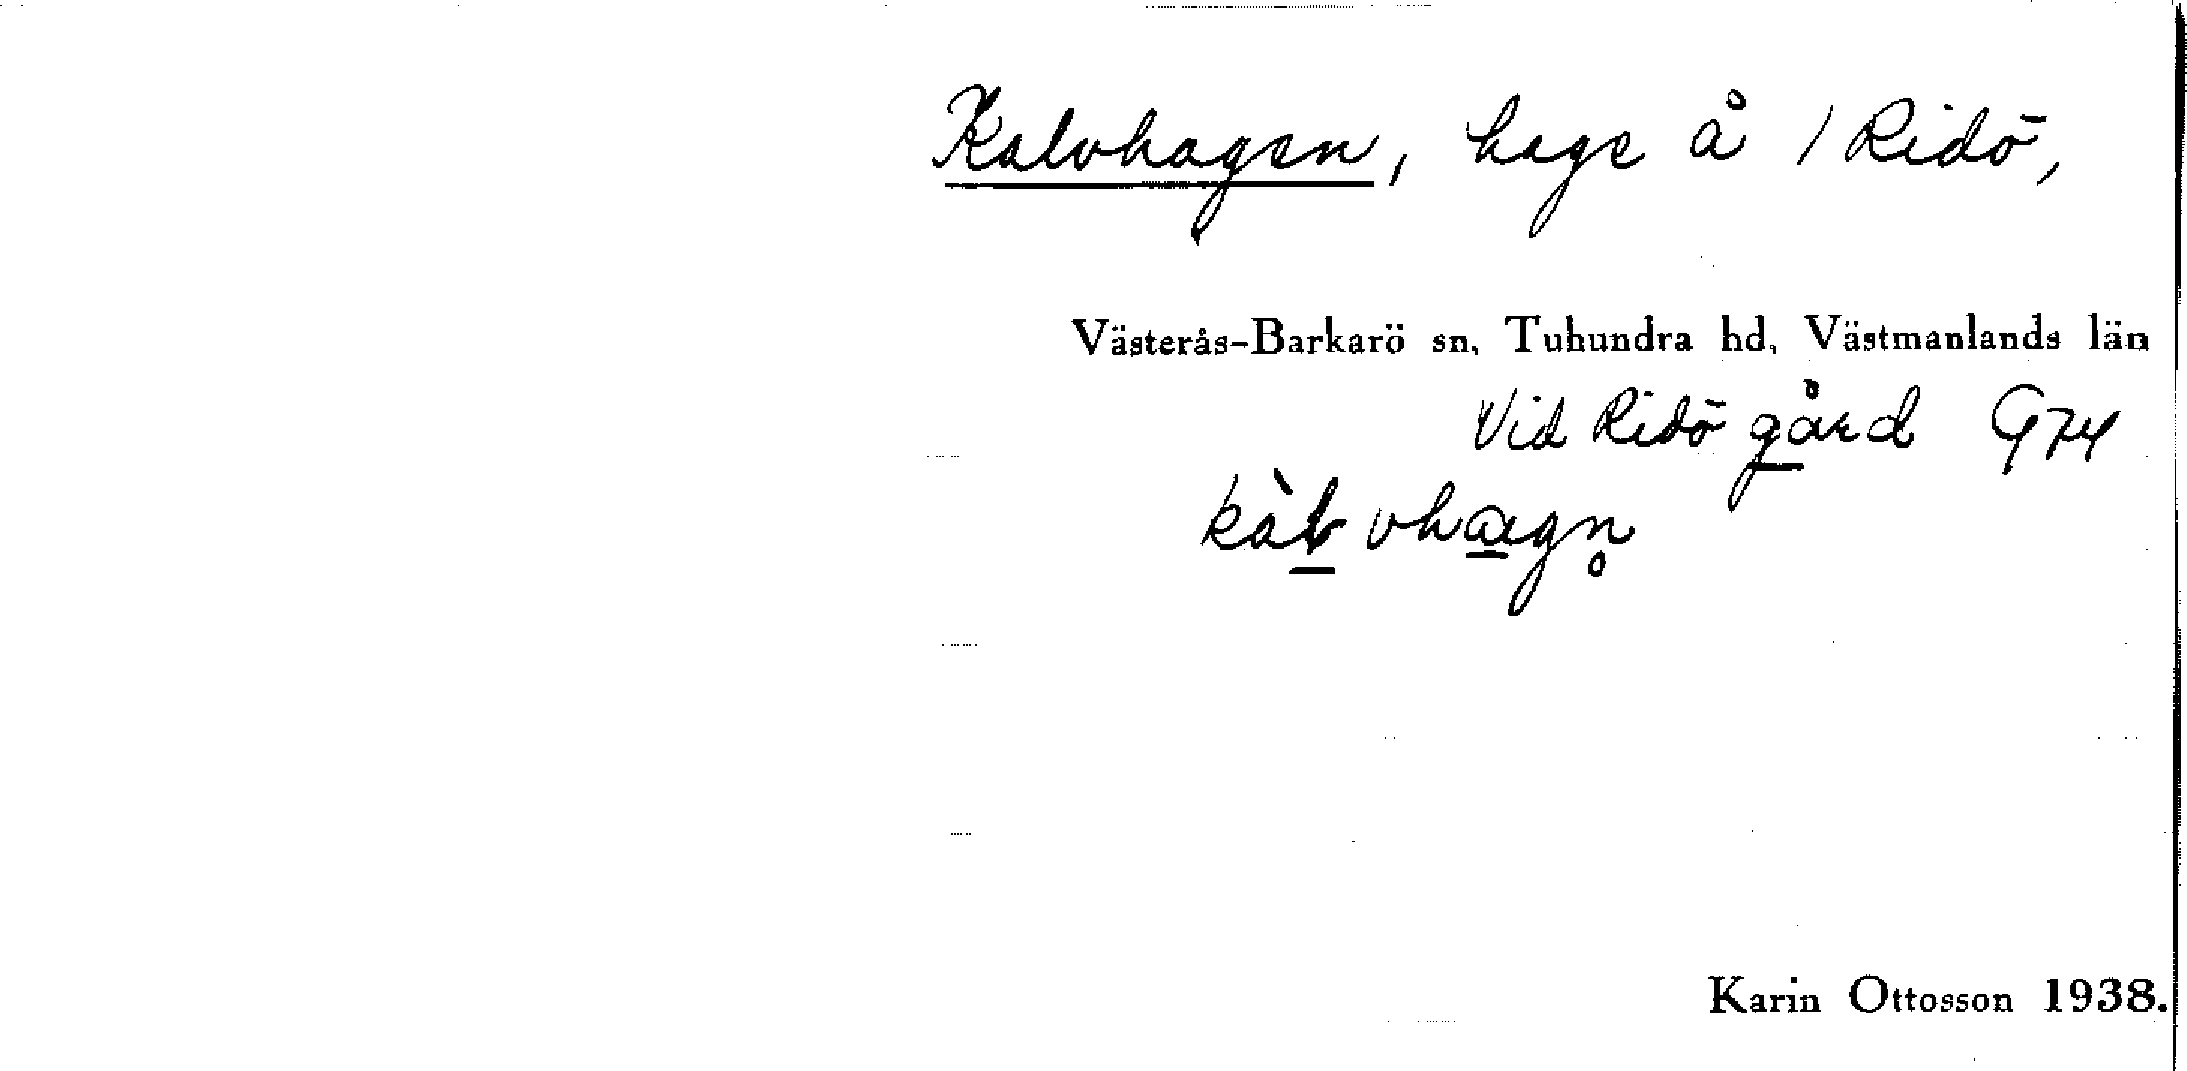 Kalvhagen, hage å 1 Ridö,
Västerås-Barkarö sn, Tuhundra hd, Västmanlands län
Vid Ridö gård G74
kàlvhagn̥
Karin Ottosson 1938.